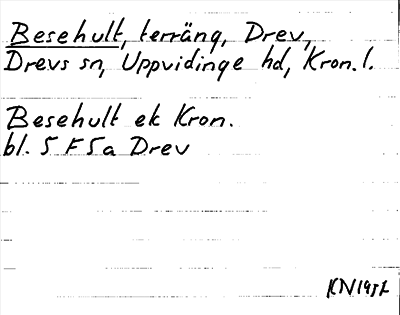 Besehult, terräng, Drev,
Drevs sn, Uppvidinge hd, Kron. l.
Besehult ek Kron.
bl. 5 F 5a Drev